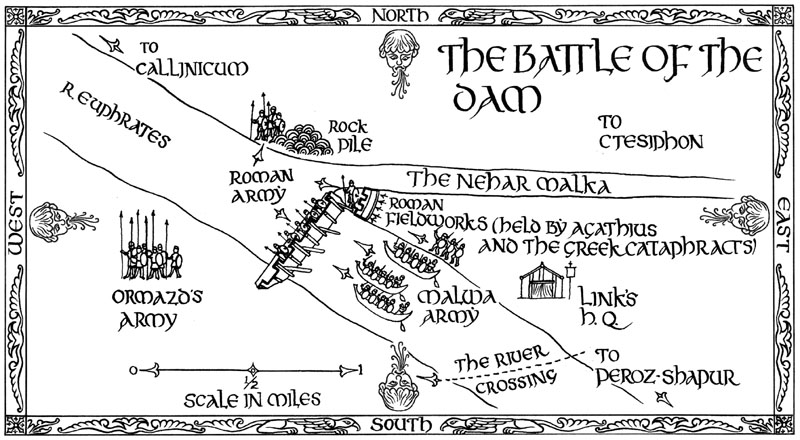 NORTH
THE BATTLE OF THE
DAM
TO
CALLINICUM
R. EUPHRATES
ROCK
PILE
TO
CTESIPHON
ROMAN
ARMY
THE NEHAR MALKA
ROMAN
FIELDWORKS (HELD BY AGATHIUS
AND THE GREEK CATAPHRACTS)
WEST
EAST
ORMAZD'S
ARMY
MALWA
ARMY
LINK'S
H.Q
THE RIVER
CROSSING
TO
PEROZ-SHAPUR
0 1
½
SCALE IN MILES
SOUTH